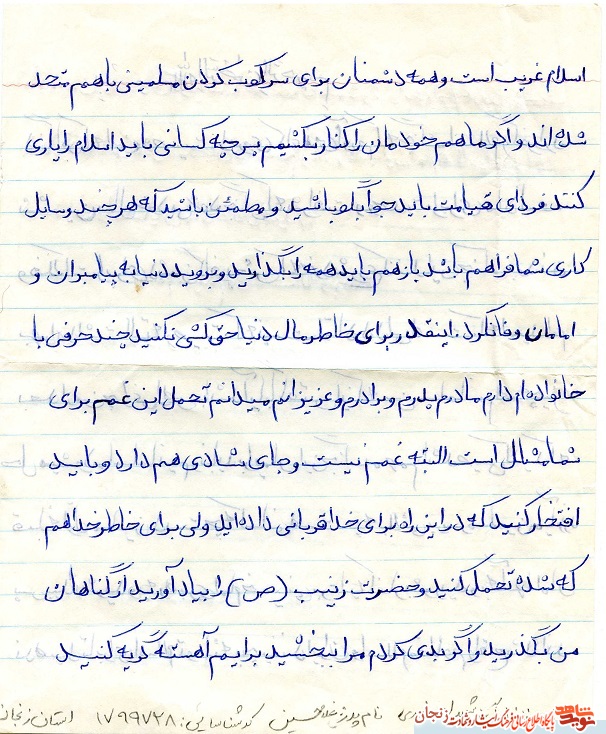 اسلام غریب است و همه دشمنان برای سرکوب کردن مسلمینی باهم متحد
شده اند و اگر ما هم خودمان را کنار بکشیم پس چه کسانی باید اسلام را یاری
کنند فردای قیامت باید جوابگو باشید و مطمئن باشید که هر چند وسایل
کاری شما فراهم باشد باز هم باید همه را بگذارید و بروید دنیا به پیامبران و
امامان وفا نکرد. اینقدر برای خاطر مال دنیا حق کشی نکنید چند حرفی با
خانواده ام دارم مادرم پدرم و برادرم و عزیزانم میدانم تحمل این غم برای
شما مشکل است البته غم نیست و جای شادی هم دارد و باید
افتخار کنید که در این راه برای خدا قربانی داده اید ولی برای خاطر خدا هم
که شده تحمل کنید و حضرت زینب (ص) را بیاد آورید از گناهان
من بگذرید و اگر بدی کردم مرا ببخشید برایم آهسته گریه کنید
نام پدر: غلامحسین کد شناسایی: ۱۷۹۹۷۲۸ استان زنجان
نوید شاهد پایگاه اطلاع رسانی فرهنگ ایثار و شهادت زنجان